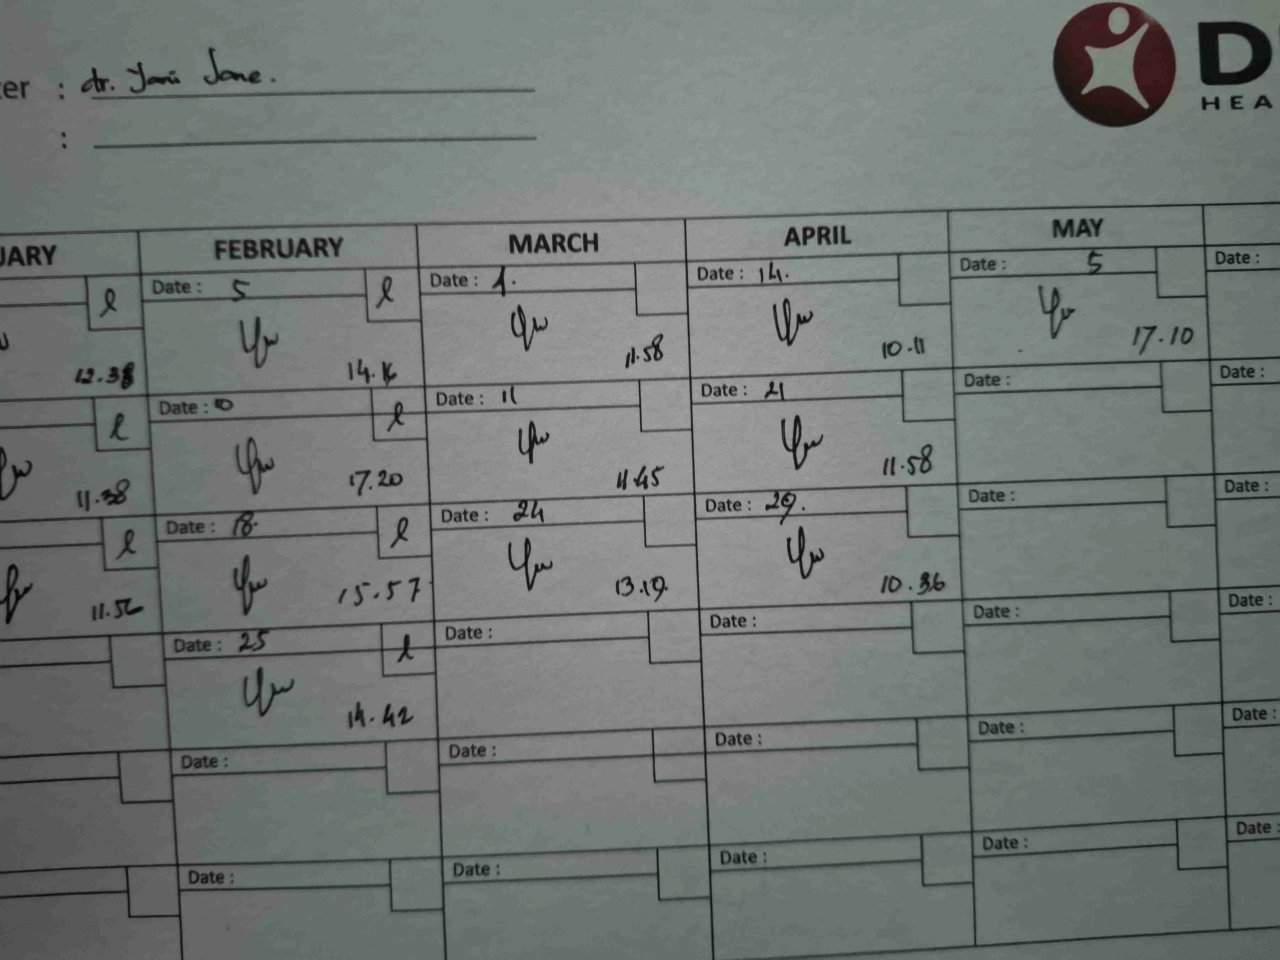 er : dr. Yani Jane.
:
D
HEA
UARY FEBRUARY MARCH APRIL MAY
l Date : 5 l Date : 1. Date : 14. Date : 5 Date :
12.38 14.16 11.58 10.11 17.10
l Date : 10 l Date : 11 Date : 21 Date : Date :
11.38 17.20 11.45 11.58
l Date : 18. l Date : 24 Date : 29. Date : Date :
11.56 15.57 13.19 10.36
Date : 25 l Date : Date : Date : Date :
14.42
Date : Date : Date : Date : Date :
Date : Date : Date : Date : Date :